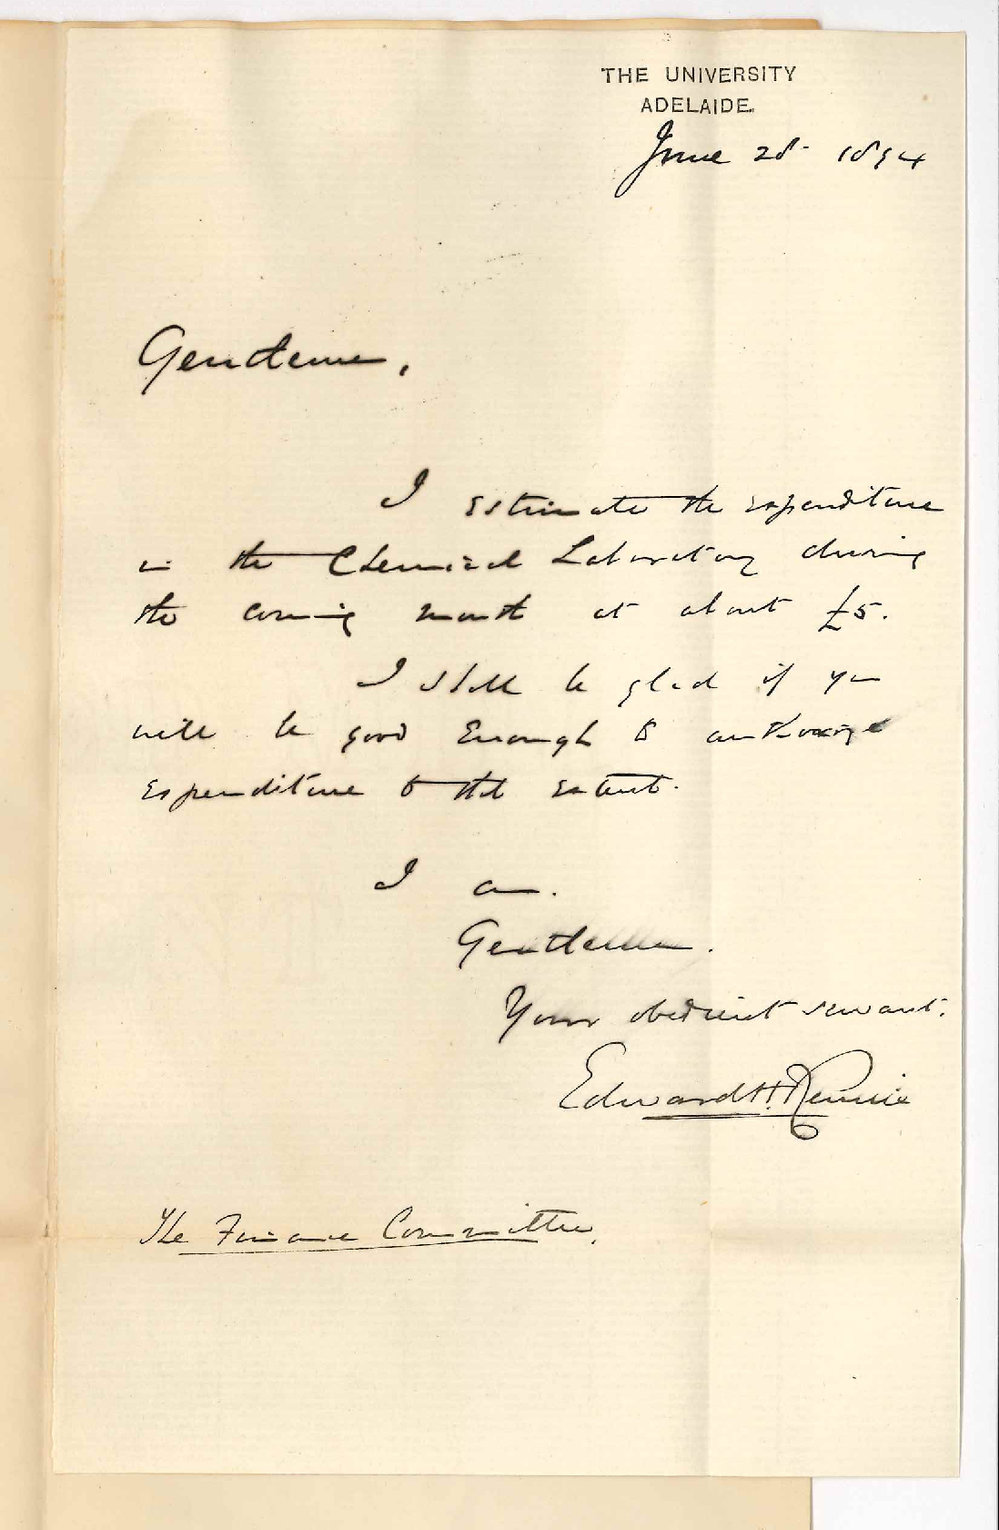 THE UNIVERSITY
ADELAIDE.
June 28 1894
Gentlemen,
I estimate the expenditure
in the Chemical Laboratory during
the coming month at about £5.
I shall be glad if you
will be good enough to authorize
expenditure to that extent.
I am.
Gentlemen.
Your obedient servant.
Edward H. Rennie
The Finance Committee.